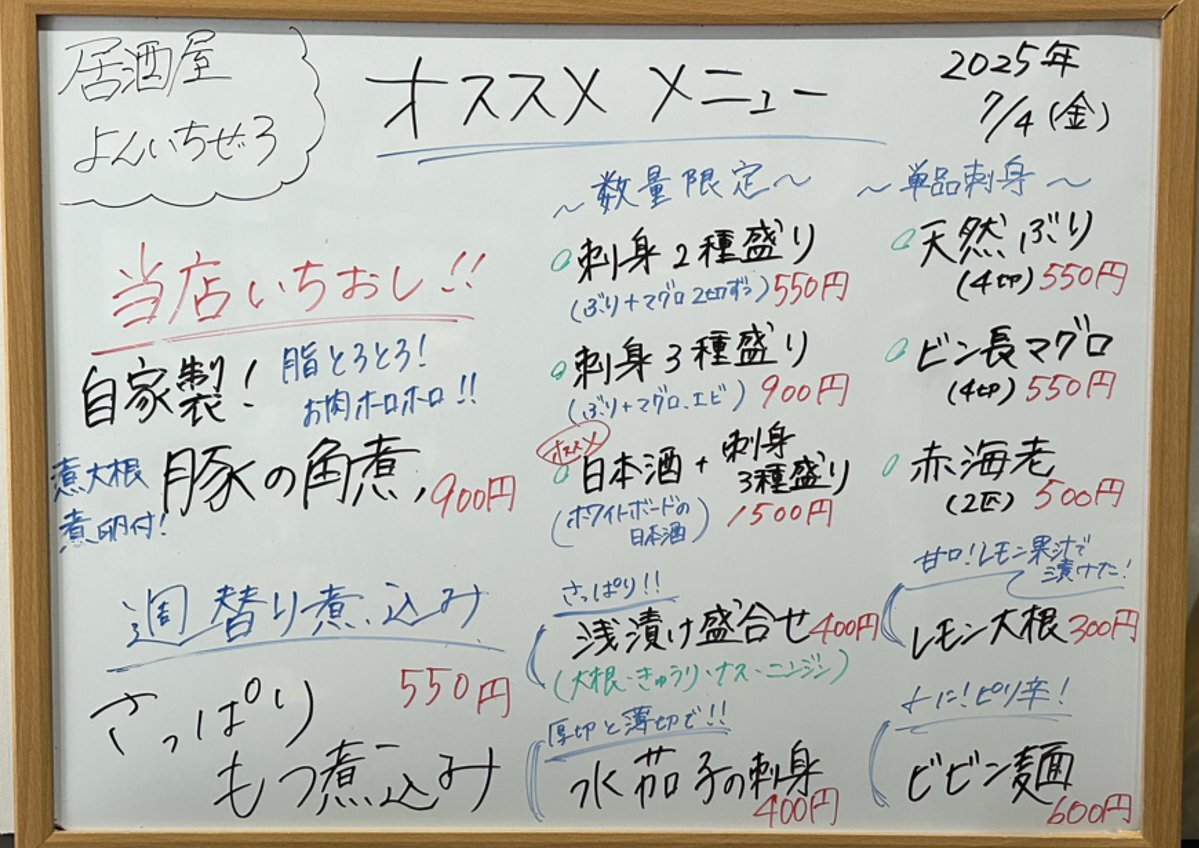 居酒屋
よんいちぜろ
オススメ メニュー
2025年
7/4(金)
当店いちおし!!
自家製!
脂とろとろ!
お肉ホロホロ!!
煮大根
煮卵付!
豚の角煮
900円
週替り煮込み
550円
さっぱり
もつ煮込み
～数量限定～
刺身2種盛り
(ぶり+マグロ 2切ずつ) 550円
刺身3種盛り
(ぶり+マグロ、エビ) 900円
オススメ
日本酒+刺身
3種盛り
(ホワイトボードの
日本酒)
1500円
さっぱり!!
浅漬け盛合せ 400円
(大根・きゅうり・ナス・ニンジン)
厚切と薄切で!!
水茄子の刺身
400円
～単品刺身～
天然ぶり
(4切) 550円
ビン長マグロ
(4切) 550円
赤海老
(2匹) 500円
甘口!レモン果汁で
漬けた!
レモン大根 300円
ピリ辛!
ビビン麺
600円